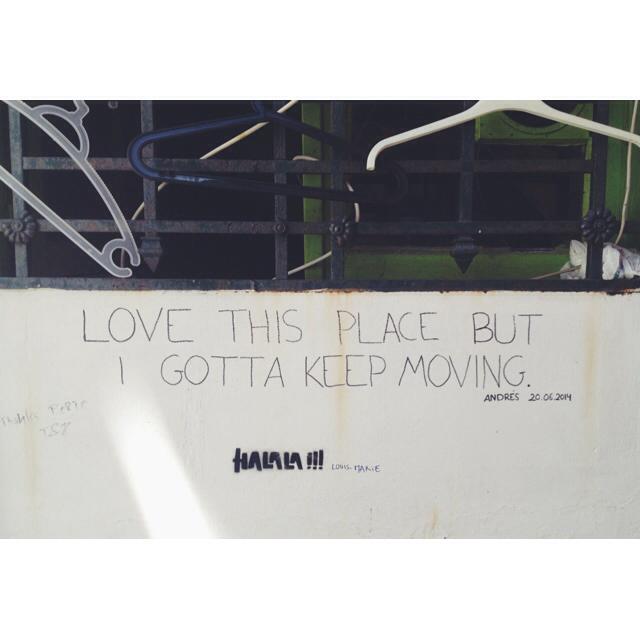 LOVE THIS PLACE BUT
I GOTTA KEEP MOVING.
ANDRÉS 20.06.2014
HALALA!!! LOUIS-MARIE